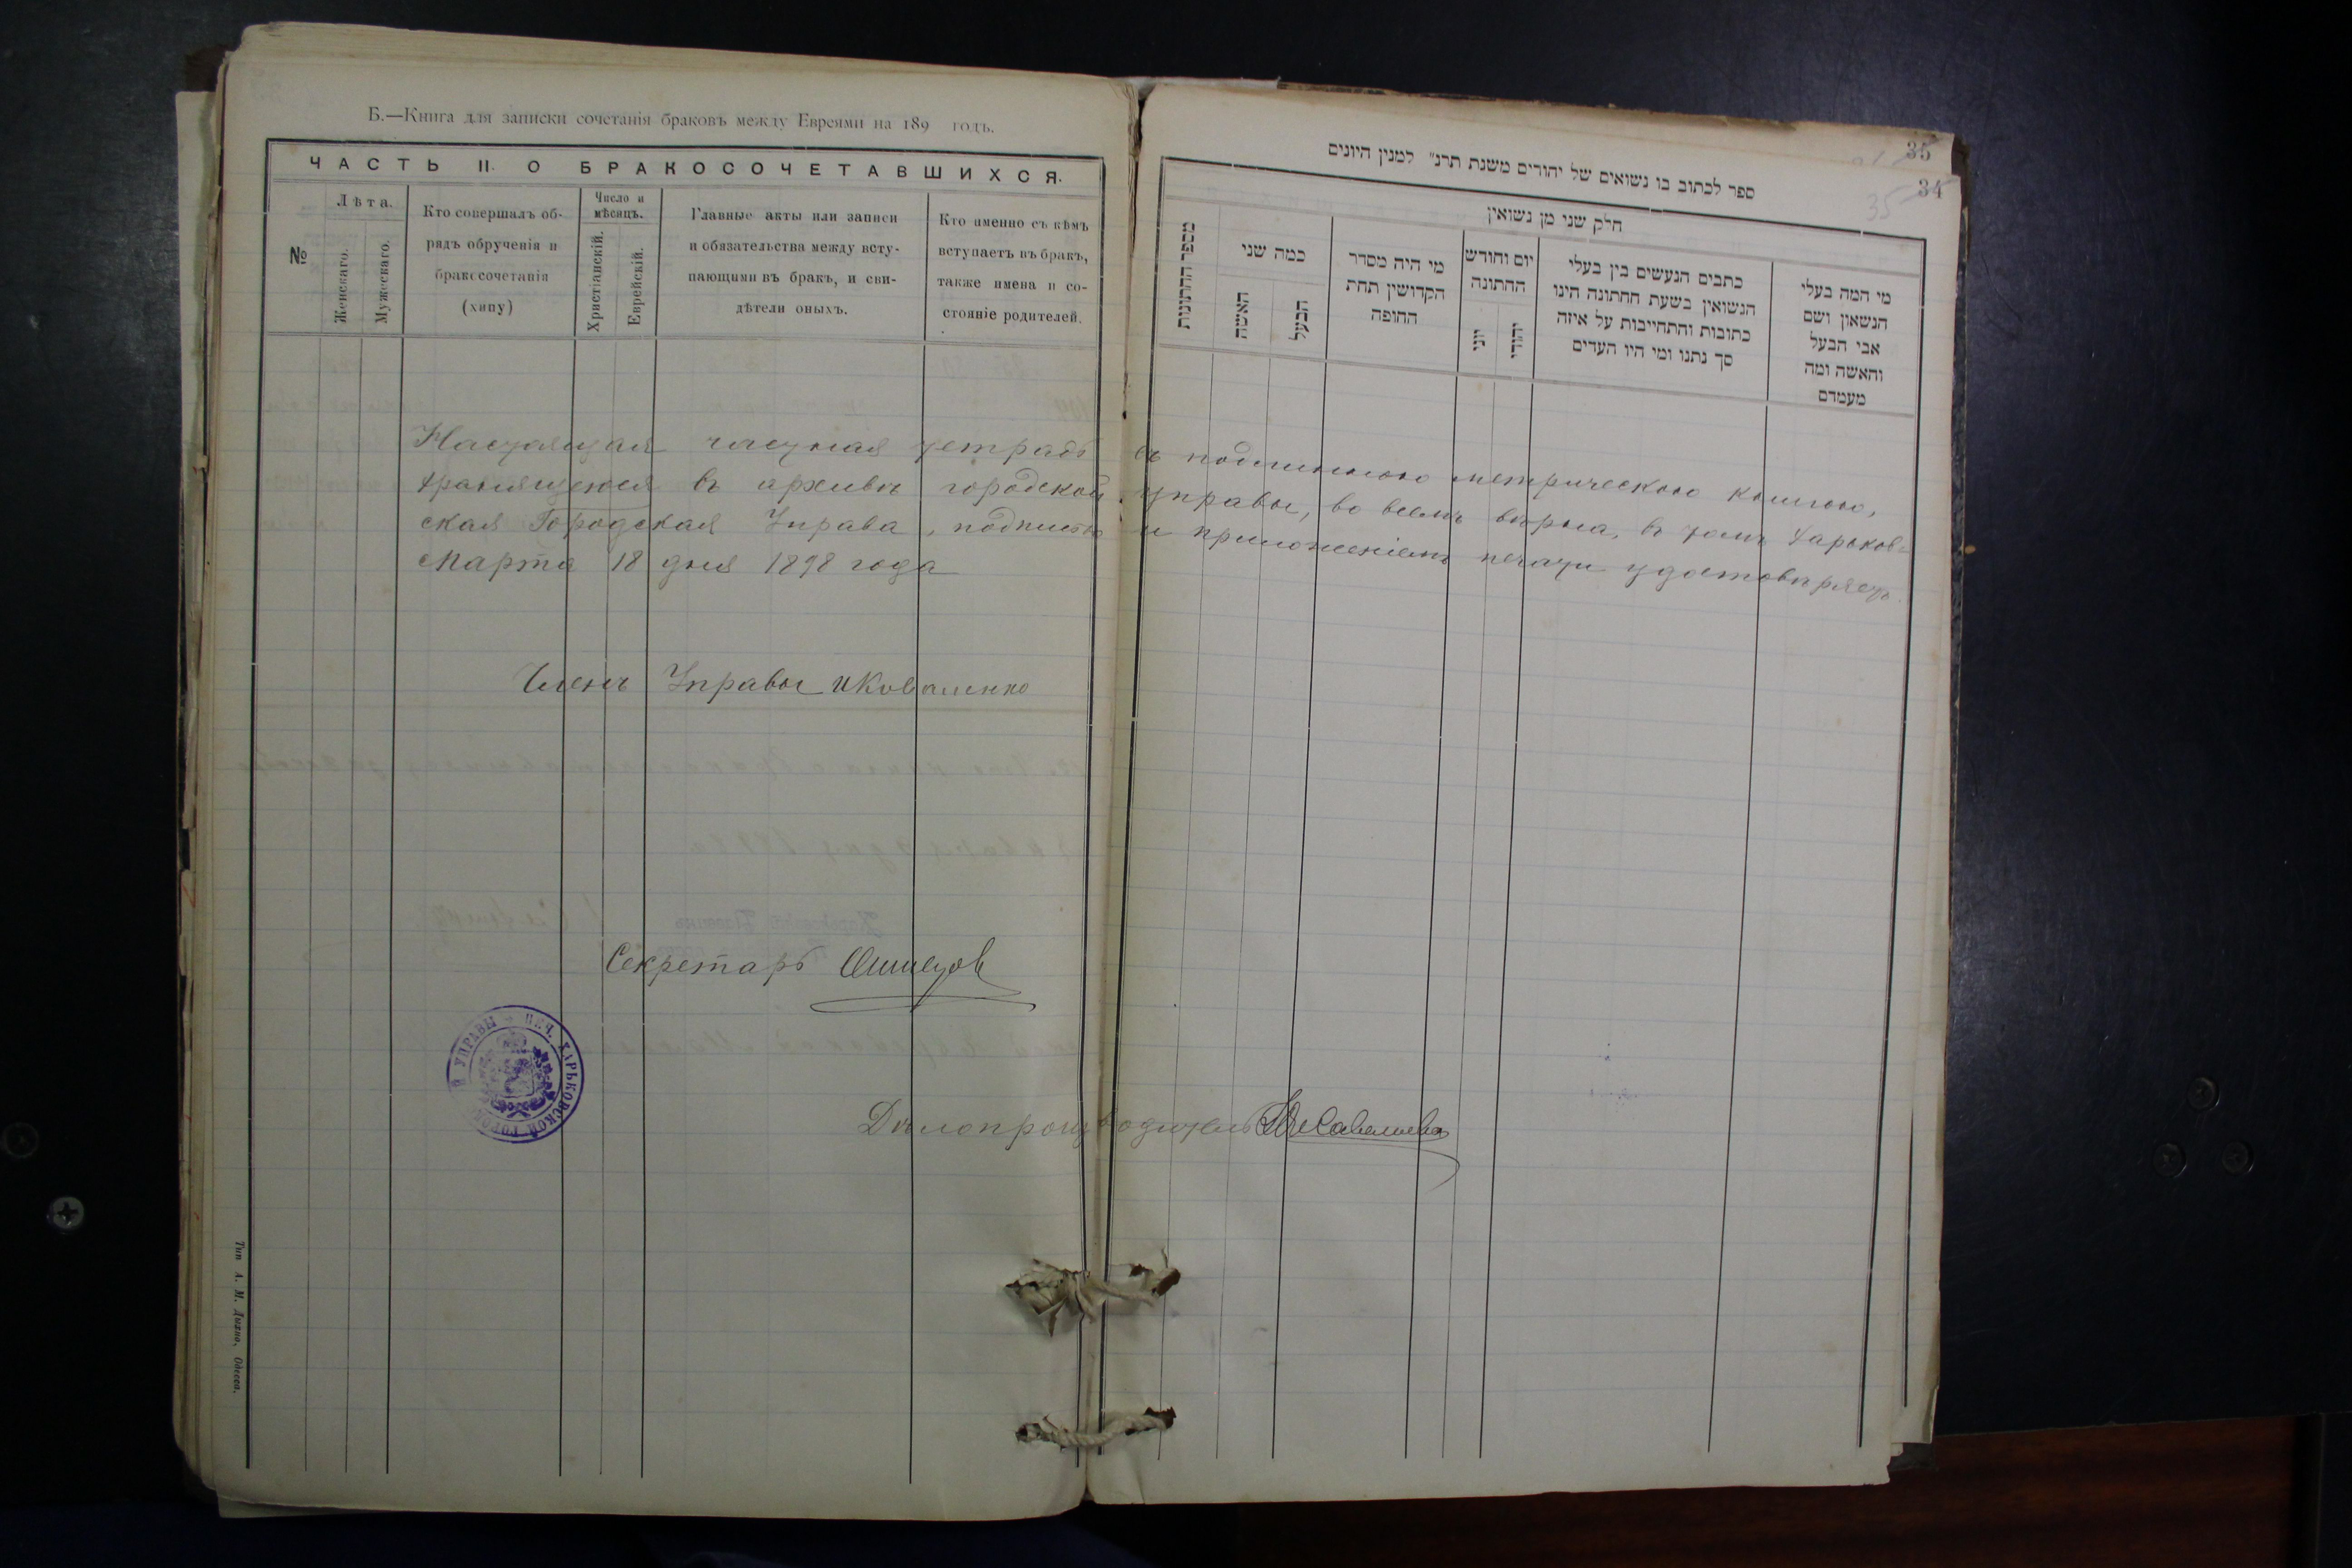 Б.—Книга для записки сочетанія браковъ между Евреями на 189 годъ.
ЧАСТЬ II. О БРАКОСОЧЕТАВШИХСЯ.
№
Лѣта.
Женскаго.
Мужескаго.
Кто совершалъ об-
рядъ обрученія и
бракосочетанія
(хипу)
Число и
мѣсяцъ.
Христіанскій.
Еврейскій.
Главные акты или записи
и обязательства между всту-
пающими въ бракъ, и сви-
дѣтели оныхъ.
Кто именно съ кѣмъ
вступаетъ въ бракъ,
также имена и со-
стояніе родителей.
35
34
35
ספר לכתוב בו נשואים של יהודים משנת תרנ״ למנין היונים
חלק שני מן נשואין
מספר החתונות
כמה שני
האשה
הבעל
מי היה מסדר
הקדושין תחת
החופה
יום וחודש
החתונה
יוני
יהודי
כתבים הנעשים בין בעלי
הנשואין בשעת החתונה הינו
כתובות והתחייבות על איזה
סך נתנו ומי היו העדים
מי המה בעלי
הנשאון ושם
אבי הבעל
והאשה ומה
מעמדם
Настоящая частная тетрадь съ подлинною метрическою книгою,
хранящеюся въ архивѣ городской управы, во всемъ вѣрна, въ томъ Харьков-
ская Городская Управа, подписью и приложеніемъ печати удостовѣряетъ.
Марта 18 дня 1898 года
Членъ Управы И Коваленко
Секретарь
Дѣлопроизводитель
ПЕЧ. ХАРЬКОВСКОЙ ГОРОДСКОЙ УПРАВЫ
Тип А. М. Дыхно, Одесса.